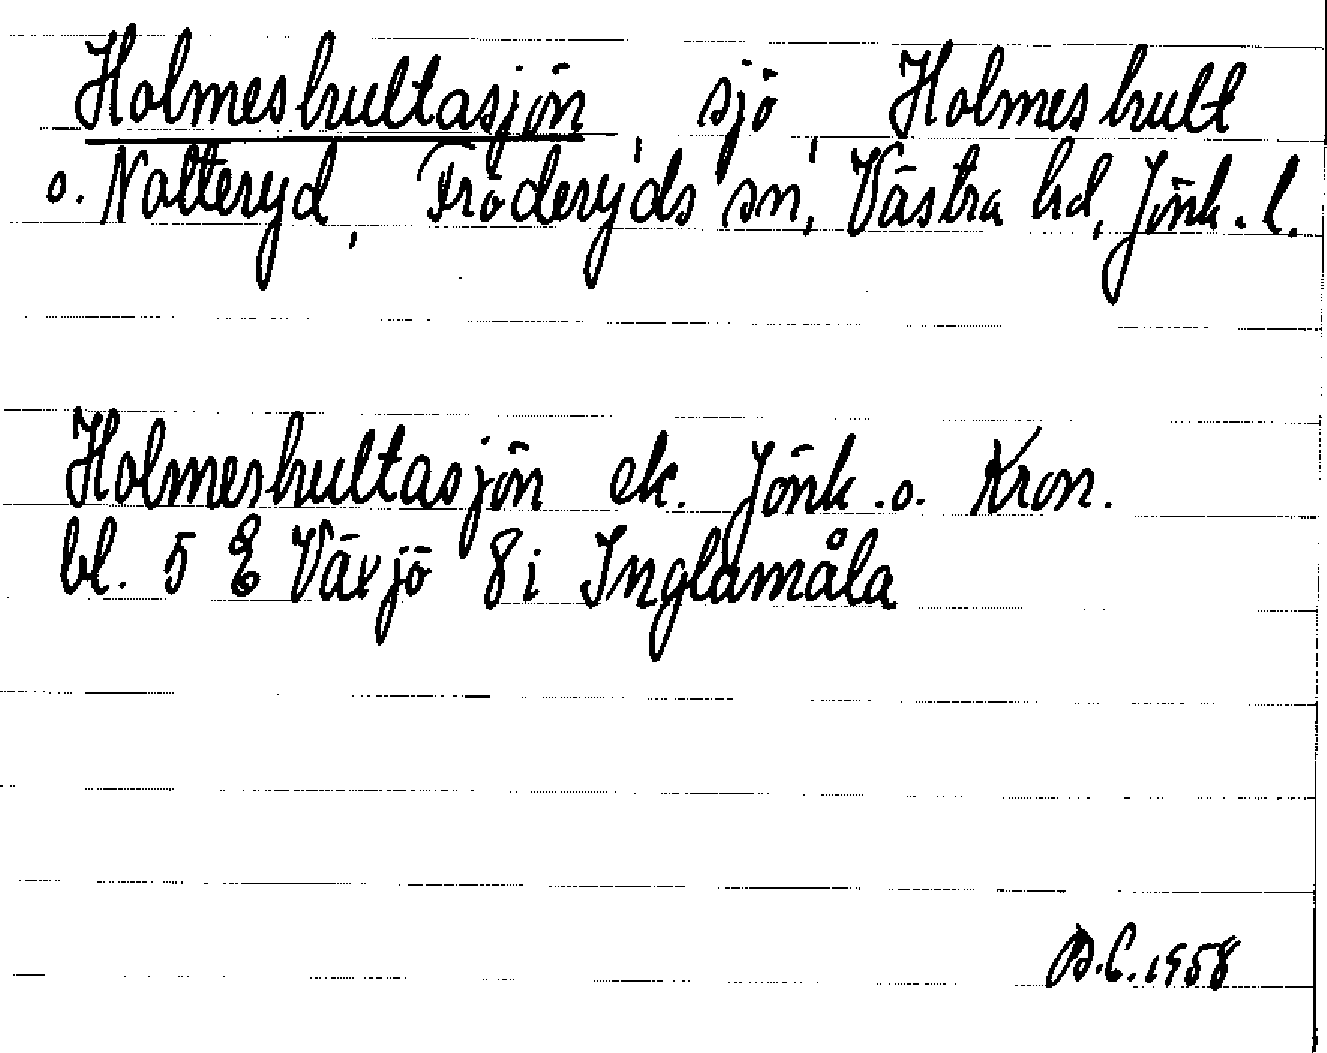 Holmeshultasjön, sjö, Holmeshult
o. Nolteryd, Fröderyds sn, Västra hd, Jönk. l.
Holmeshultasjön ek. Jönk. o. Kron.
bl. 5 E Växjö 8 i Inglamåla
B.C. 1958